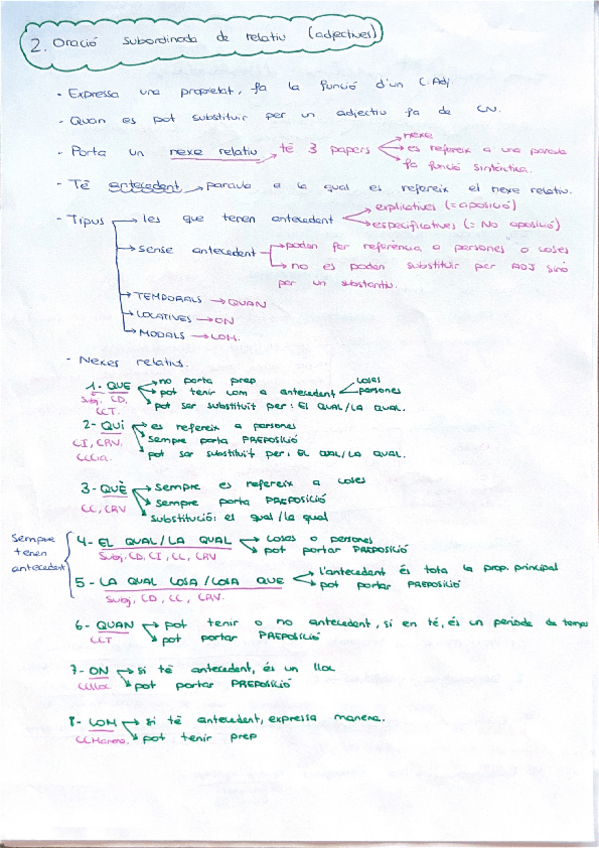 2. Oració subordinada de relatiu (adjectives)
· Expressa una propietat, fa la funció d'un C.Adj.
· Quan es pot substituir per un adjectiu fa de CN.
· Porta un nexe relatiu → té 3 papers → nexe
→ es refereix a una paraula
→ fa funció sintàctica.
· Té antecedent → paraula a la qual es refereix el nexe relatiu.
· Tipus → les que tenen antecedent → explicatives (= aposició)
→ especificatives (= No aposició)
→ sense antecedent → poden fer referència a persones o coses
→ no es poden substituir per ADJ sinó
per un substantiu.
→ TEMPORALS → QUAN
→ LOCATIVES → ON
→ MODALS → COM.
· Nexes relatius.
1- QUE → no porta prep
→ pot tenir com a antecedent coses
persones
Subj, CD,
CCT.
→ pot ser substituït per: El QUAL/LA QUAL.
2- QUI → es refereix a persones
CI, CRV.
→ sempre porta PREPOSICIÓ
CCCia.
→ pot ser substituït per: EL QUAL/LA QUAL.
3- QUÈ → sempre es refereix a coses
CC, CRV
→ sempre porta PREPOSICIÓ
→ substitució: el qual/la qual
Sempre
tenen
antecedent
4- EL QUAL/LA QUAL → coses o persones
Subj, CD, CI, CC, CRV
→ pot portar PREPOSICIÓ
5- LA QUAL COSA/COSA QUE → l'antecedent és tota la prop. principal
→ pot portar PREPOSICIÓ
Subj, CD, CC, CRV.
6- QUAN → pot tenir o no antecedent, si en té, és un període de temps
CCT
→ pot portar PREPOSICIÓ
7- ON → si té antecedent, és un lloc
CCLloc
→ pot portar PREPOSICIÓ
8- COM → si té antecedent, expressa manera.
CCManera.
→ pot tenir prep